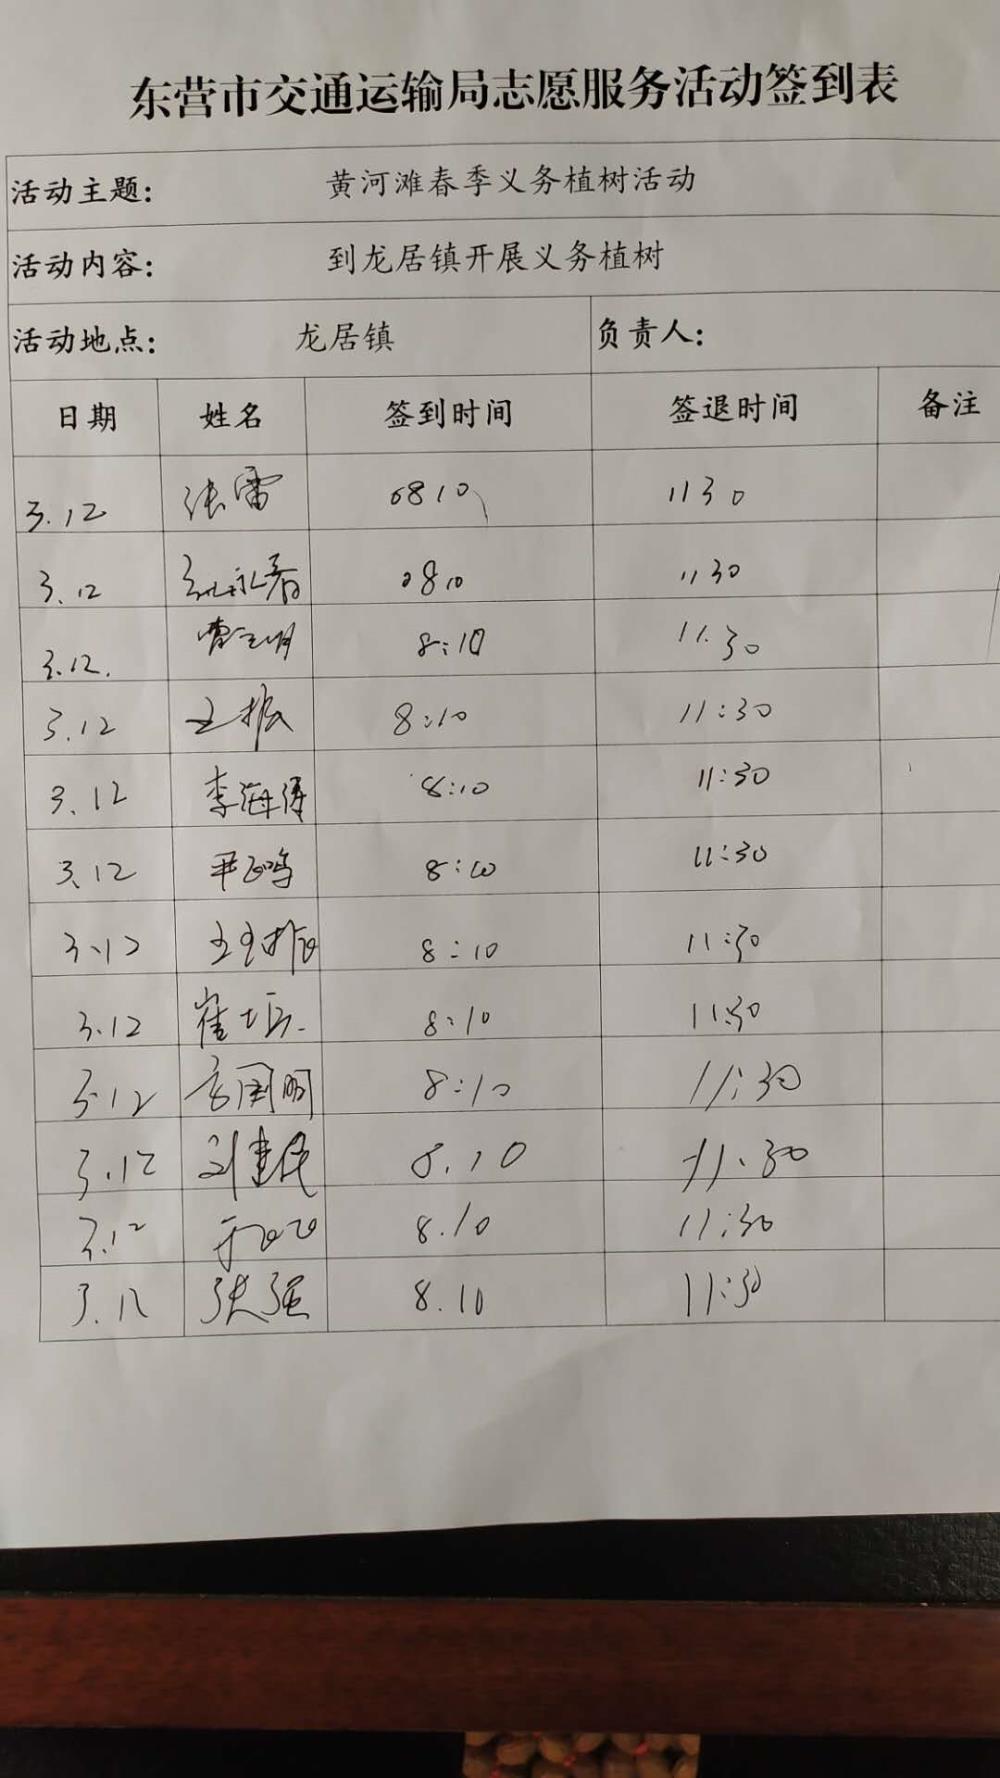 东营市交通运输局志愿服务活动签到表
活动主题: 黄河滩春季义务植树活动
活动内容: 到龙居镇开展义务植树
活动地点: 龙居镇 负责人:
日期 姓名 签到时间 签退时间 备注
3.12 张雷 0810 1130
3.12 0810 1130
3.12. 8:10 11.30
3.12 王振 8:10 11:30
3.12 李海涛 8:10 11:30
3.12 8:10 11:30
3.12 8:10 11:30
3.12 8:10 11:30
3.12 8:10 11:30
3.12 刘建民 8.10 11.30
3.12 8.10 11:30
3.12 张强 8.10 11:30